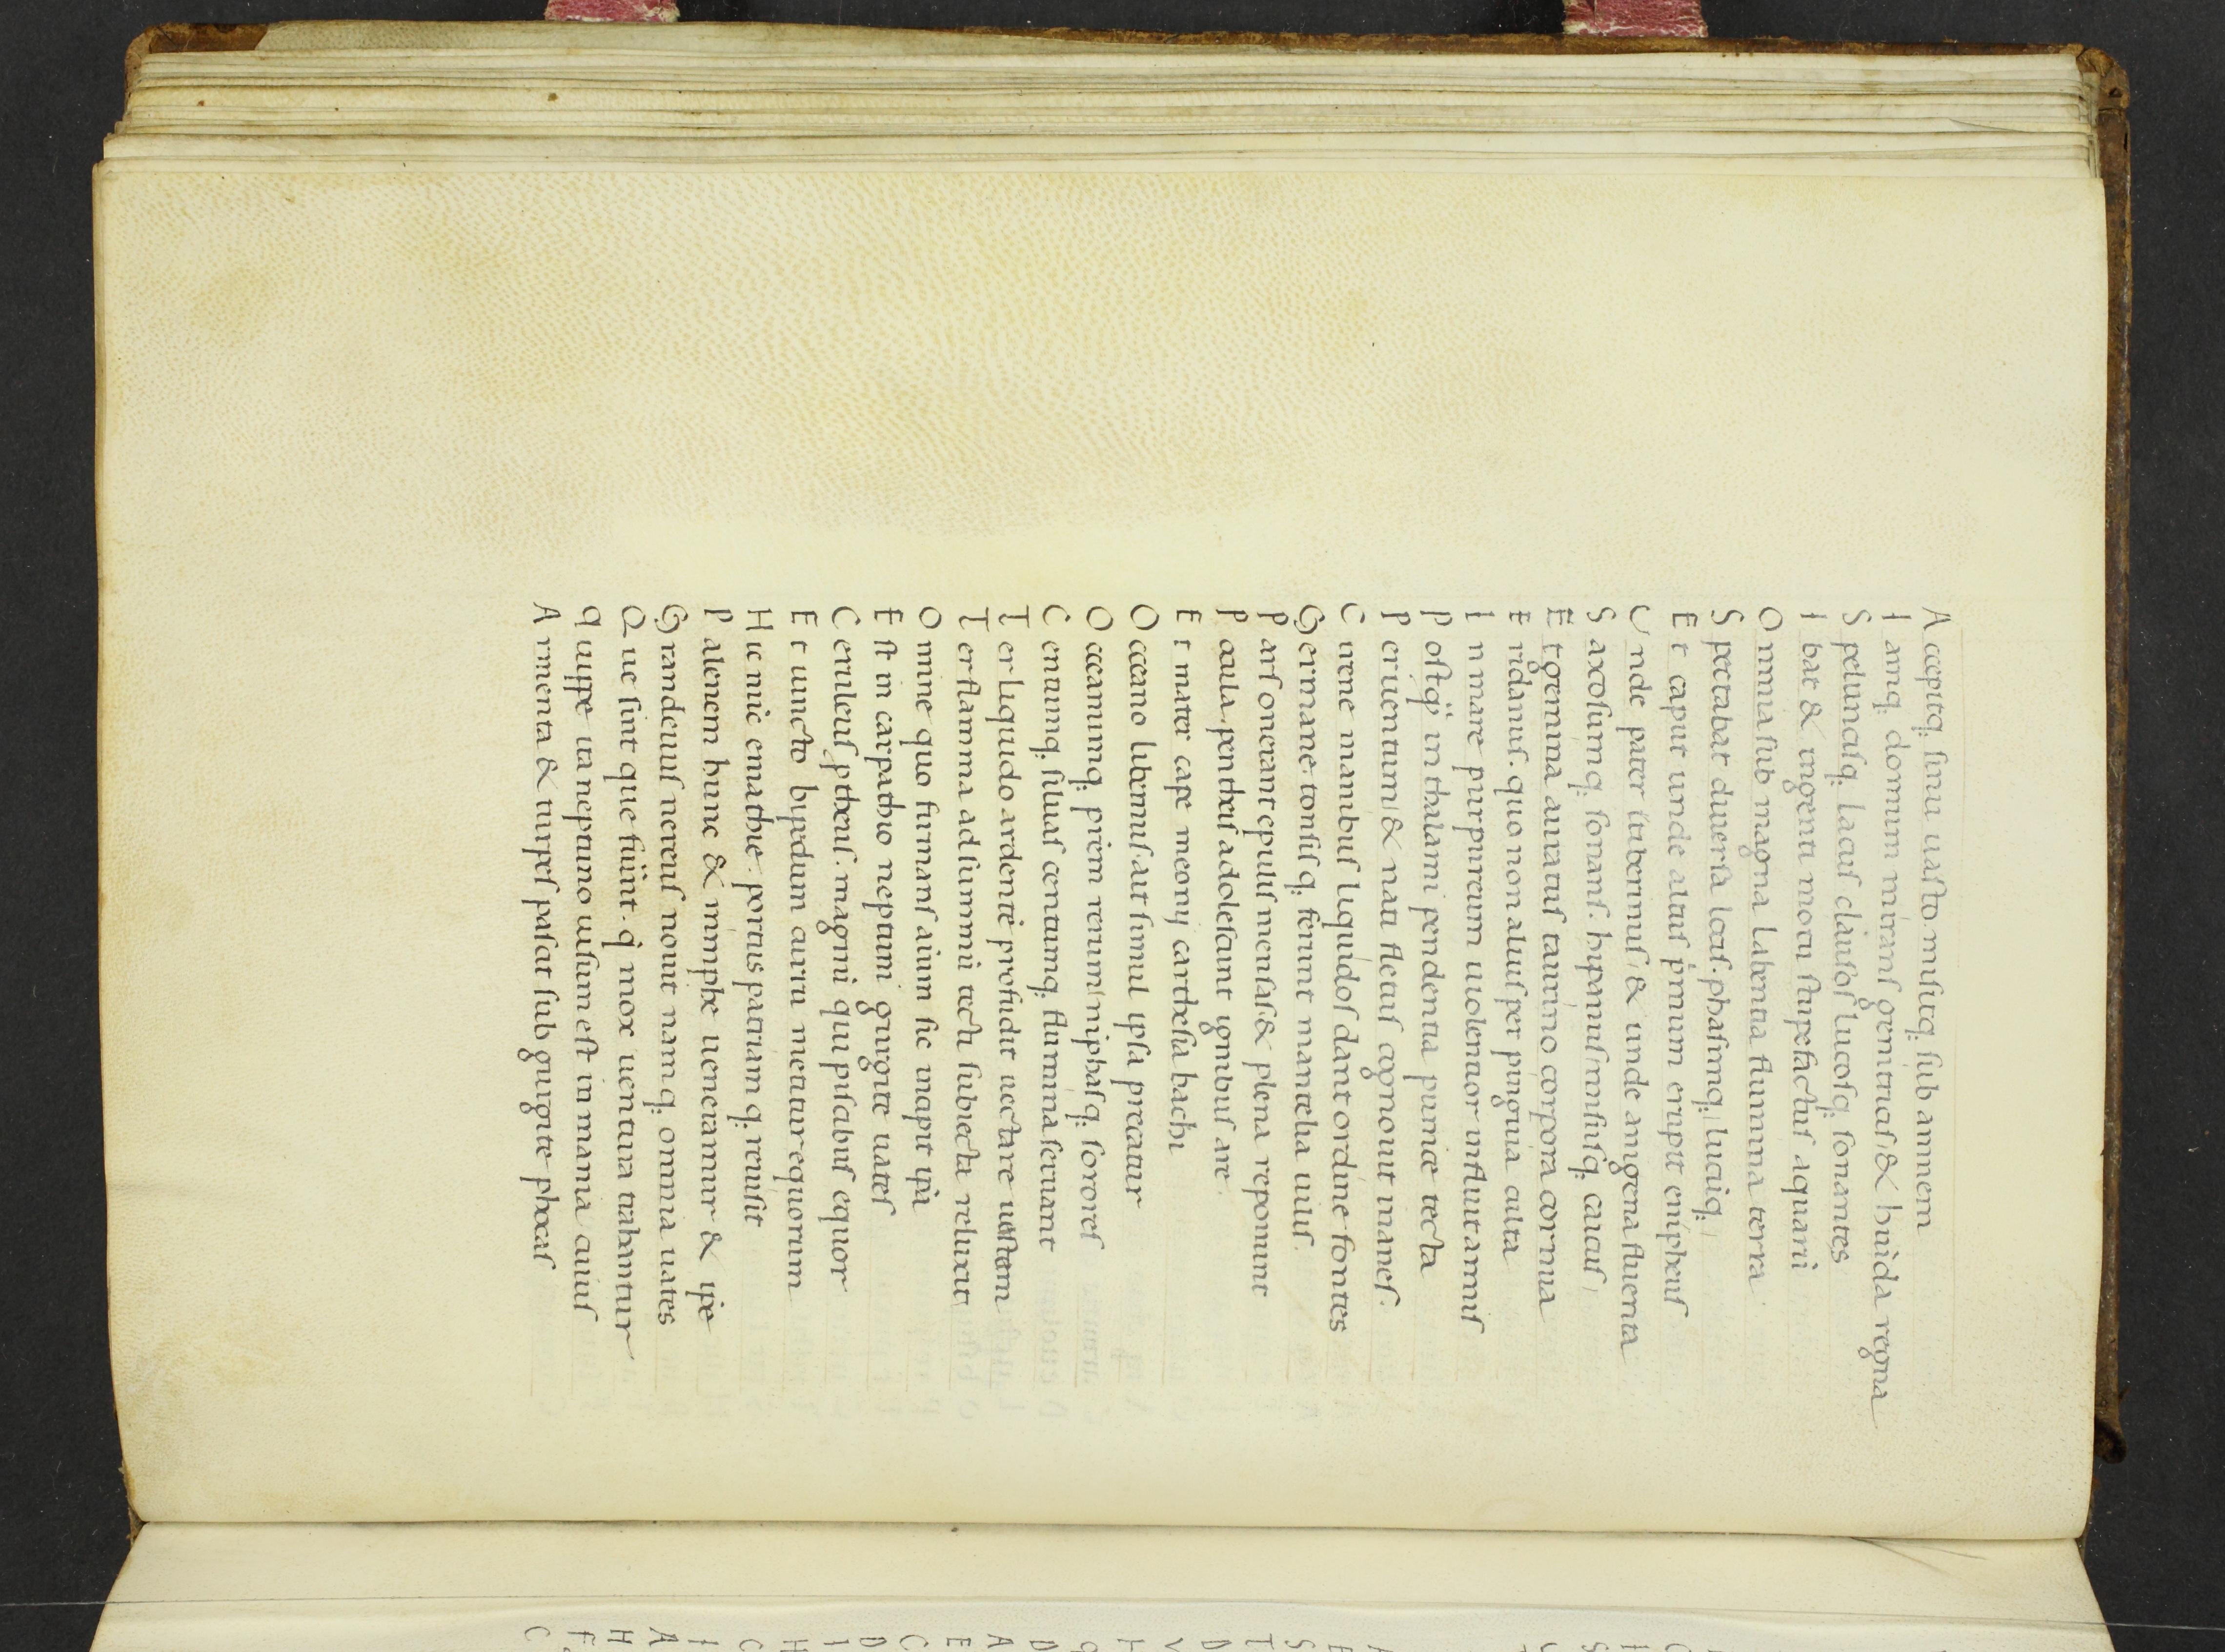 Accepitq; sinu uasto misitq; sub amnem
Iamq; domum mirans genitricis / & huida regna
Speluncisq; lacus clausos lucosq; sonantes
Ibat & ingenti motu stupefactus aquarũ
Omnia sub magna labentia flumina terra
Spectabat diuersa locis. phasimq; lucũq;
Et caput unde altus p̃mum erupit enipheus
Vnde pater tiberinus / & unde anigena fluenta
Saxosumq; sonans. hipanis / misiusq; caicus
Et gemina auratus taurino corpora cornua
Eridanus. quo non alius per pinguia culta
In mare purpureum uiolentior influit amnis
Postq̃ in thalami pendentia pumice tecta
Peruentum / & nati fletus cognouit inanes.
Cirene manibus liquidos dant ordine fontes
Germane. tonsisq; ferunt mantelia uilis.
Pars onerant epulis mensas & plena reponunt
Pocula. pentheis adolescunt ignibus are.
Et mater cape meonij carthesia bachi
Occeano libemus. ait simul ipsa precatur
Occeanumq; p̃rem rerum / niphasq; sorores
Centumq; siluas centumq; flumina seruant
Ter liquido ardentẽ profudit nectare uestam
Ter flamma ad summũ tecti subiecta reluxit
Omine quo firmans aium sic incipit ip̃a
Est in carpathio neptuni gurgite uates
Ceruleus p̃theus. magnũ qui piscibus equor
Et iuncto bipedum curru metitur equorum
Hic nũc emathie. portus patriamq; reuisit
Palenem hunc & nimphe ueneramur & ip̃e
Grandeuus nereus nouit namq; omnia uates
Que sint que fuĩnt. q̃ mox uentura trahantur
quippe ita neptuno uisum est inmania cuius
Armenta & turpes pascit sub gurgite phocas